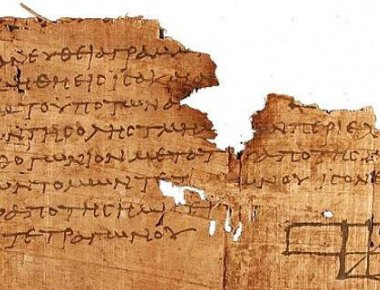 ΑΝ ΕΥΘΕΙΑ ΓΡΑΜΜ
ΜΗΘΗ ΕΙϹ ΙϹΑ ΚΑ
Α ΤΟ ΥΠΟ ΤΩΝ Α
ΩΝ ΤΗϹ ΟΛΗϹ ΤΜΗ Ν ΠΕΡΙΕΧ
ΘΟΓΩΝΙΟΝ ΜΕΤΑ ΤΟΥ ΑΠΟ ΤΗϹ
ΤΩΝ ΤΟΜΩΝ ΤΕΤ ΩΝΟΥ ΙϹΟΝ Ε
ΑΠΟ ΤΗϹ ΗΜΙ
ΤΕΤΡΑΓΩΝΟΥ